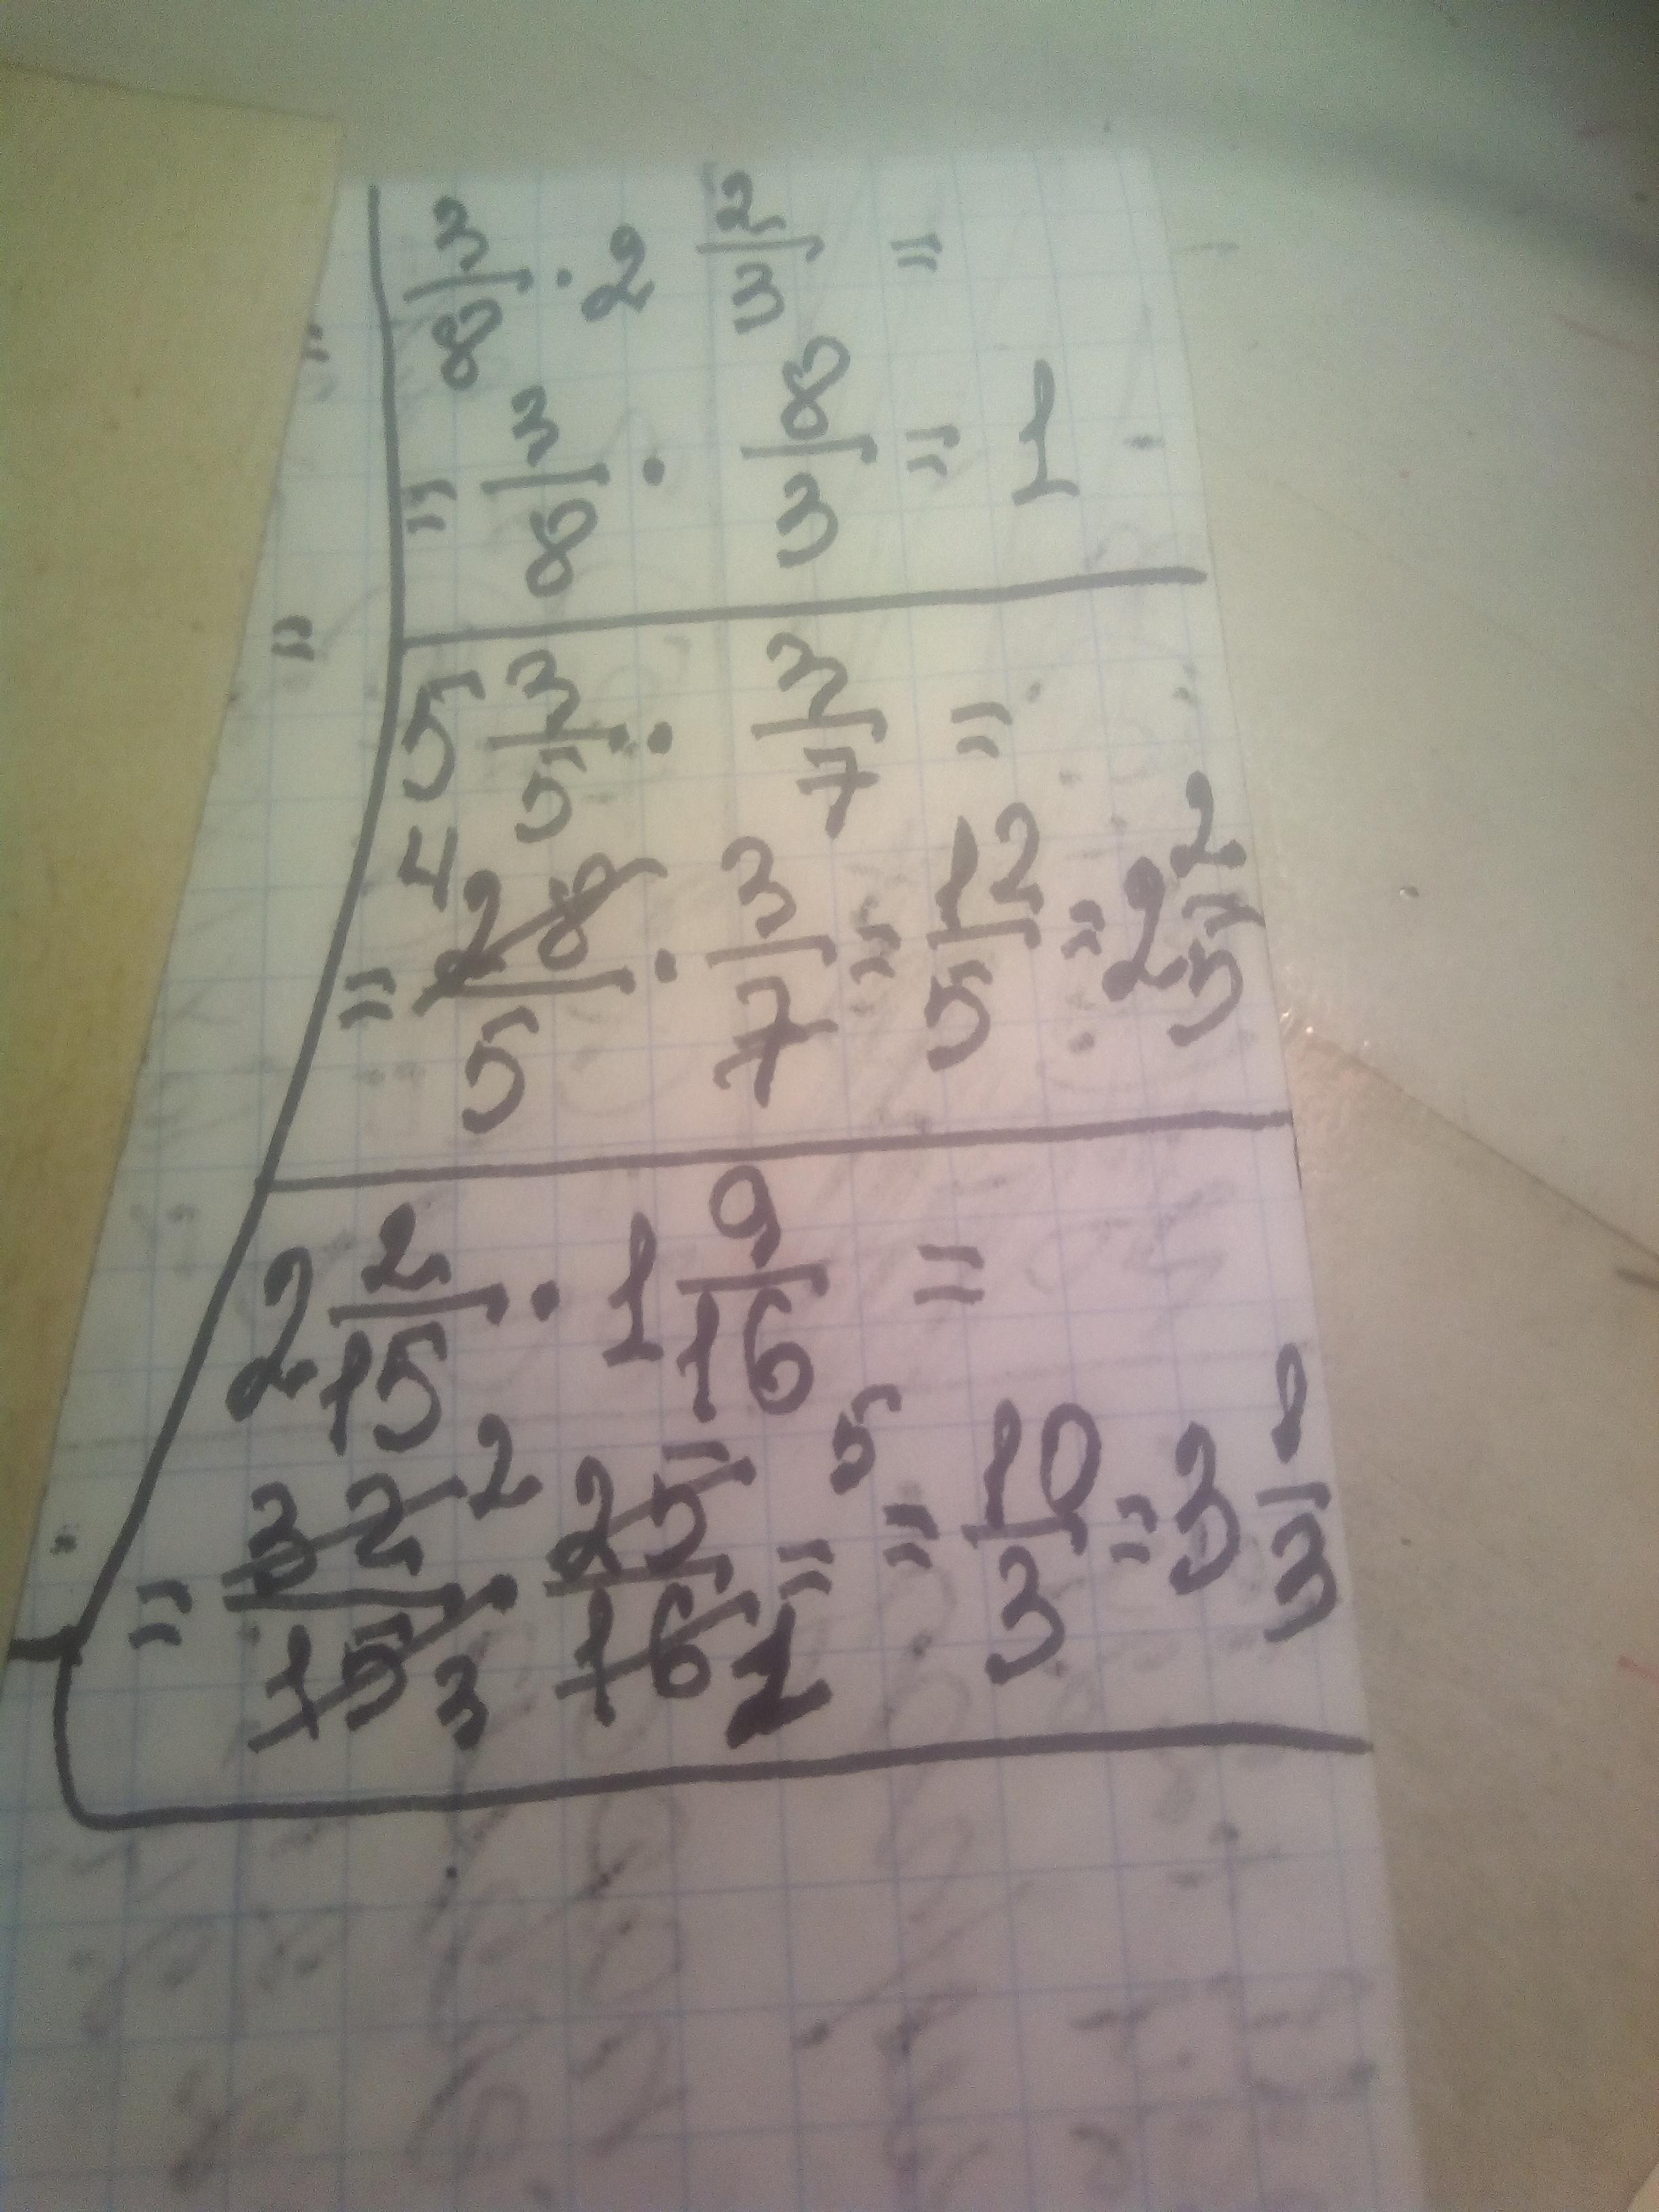 3/8 · 2 2/3 =
= 3/8 · 8/3 = 1
5 3/5 · 3/7 =
4
= 28/5 · 3/7 = 12/5 = 2 2/5
2 2/15 · 1 9/16 =
2 5
= 32/15 · 25/16 = = 10/3 = 3 1/3
3 1